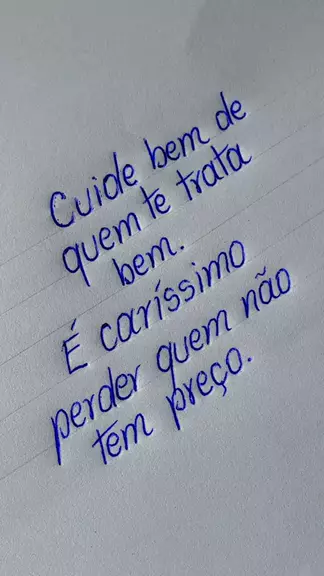 Cuide bem de
quem te trata
bem.
É caríssimo
perder quem não
tem preço.